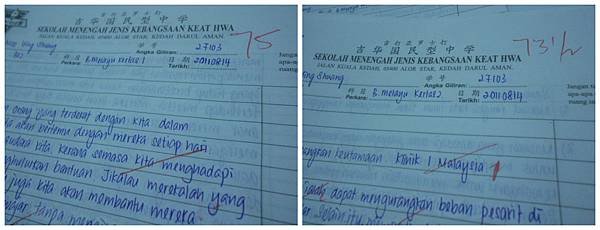 吉打亚罗士打
吉华国民型中学
SEKOLAH MENENGAH JENIS KEBANGSAAN KEAT HWA
JALAN KUALA KEDAH, 05400 ALOR STAR, KEDAH DARUL AMAN.
75
学号
Angka Giliran: 27103
科目
Perkara: B.melayu kertas 1
日期
Tarikh: 20110814
orang yang terdekat dengan kita dalam
akan bertemu dengan mereka setiap hari
kita kerana semasa kita menghadapi
bantuan. Jikalau merekalah yang
juga kita akan membantu mereka
tanpa
吉打亚罗士打
吉华国民型中学
SEKOLAH MENENGAH JENIS KEBANGSAAN KEAT HWA
JALAN KUALA KEDAH, 05400 ALOR STAR, KEDAH DARUL AMAN.
73½
学号
Angka Giliran: 27103
科目
Perkara: B.melayu kertas 2
日期
Tarikh: 20110814
keutamaan klinik 1 Malaysia
dapat mengurangkan beban pesakit di
Selain itu